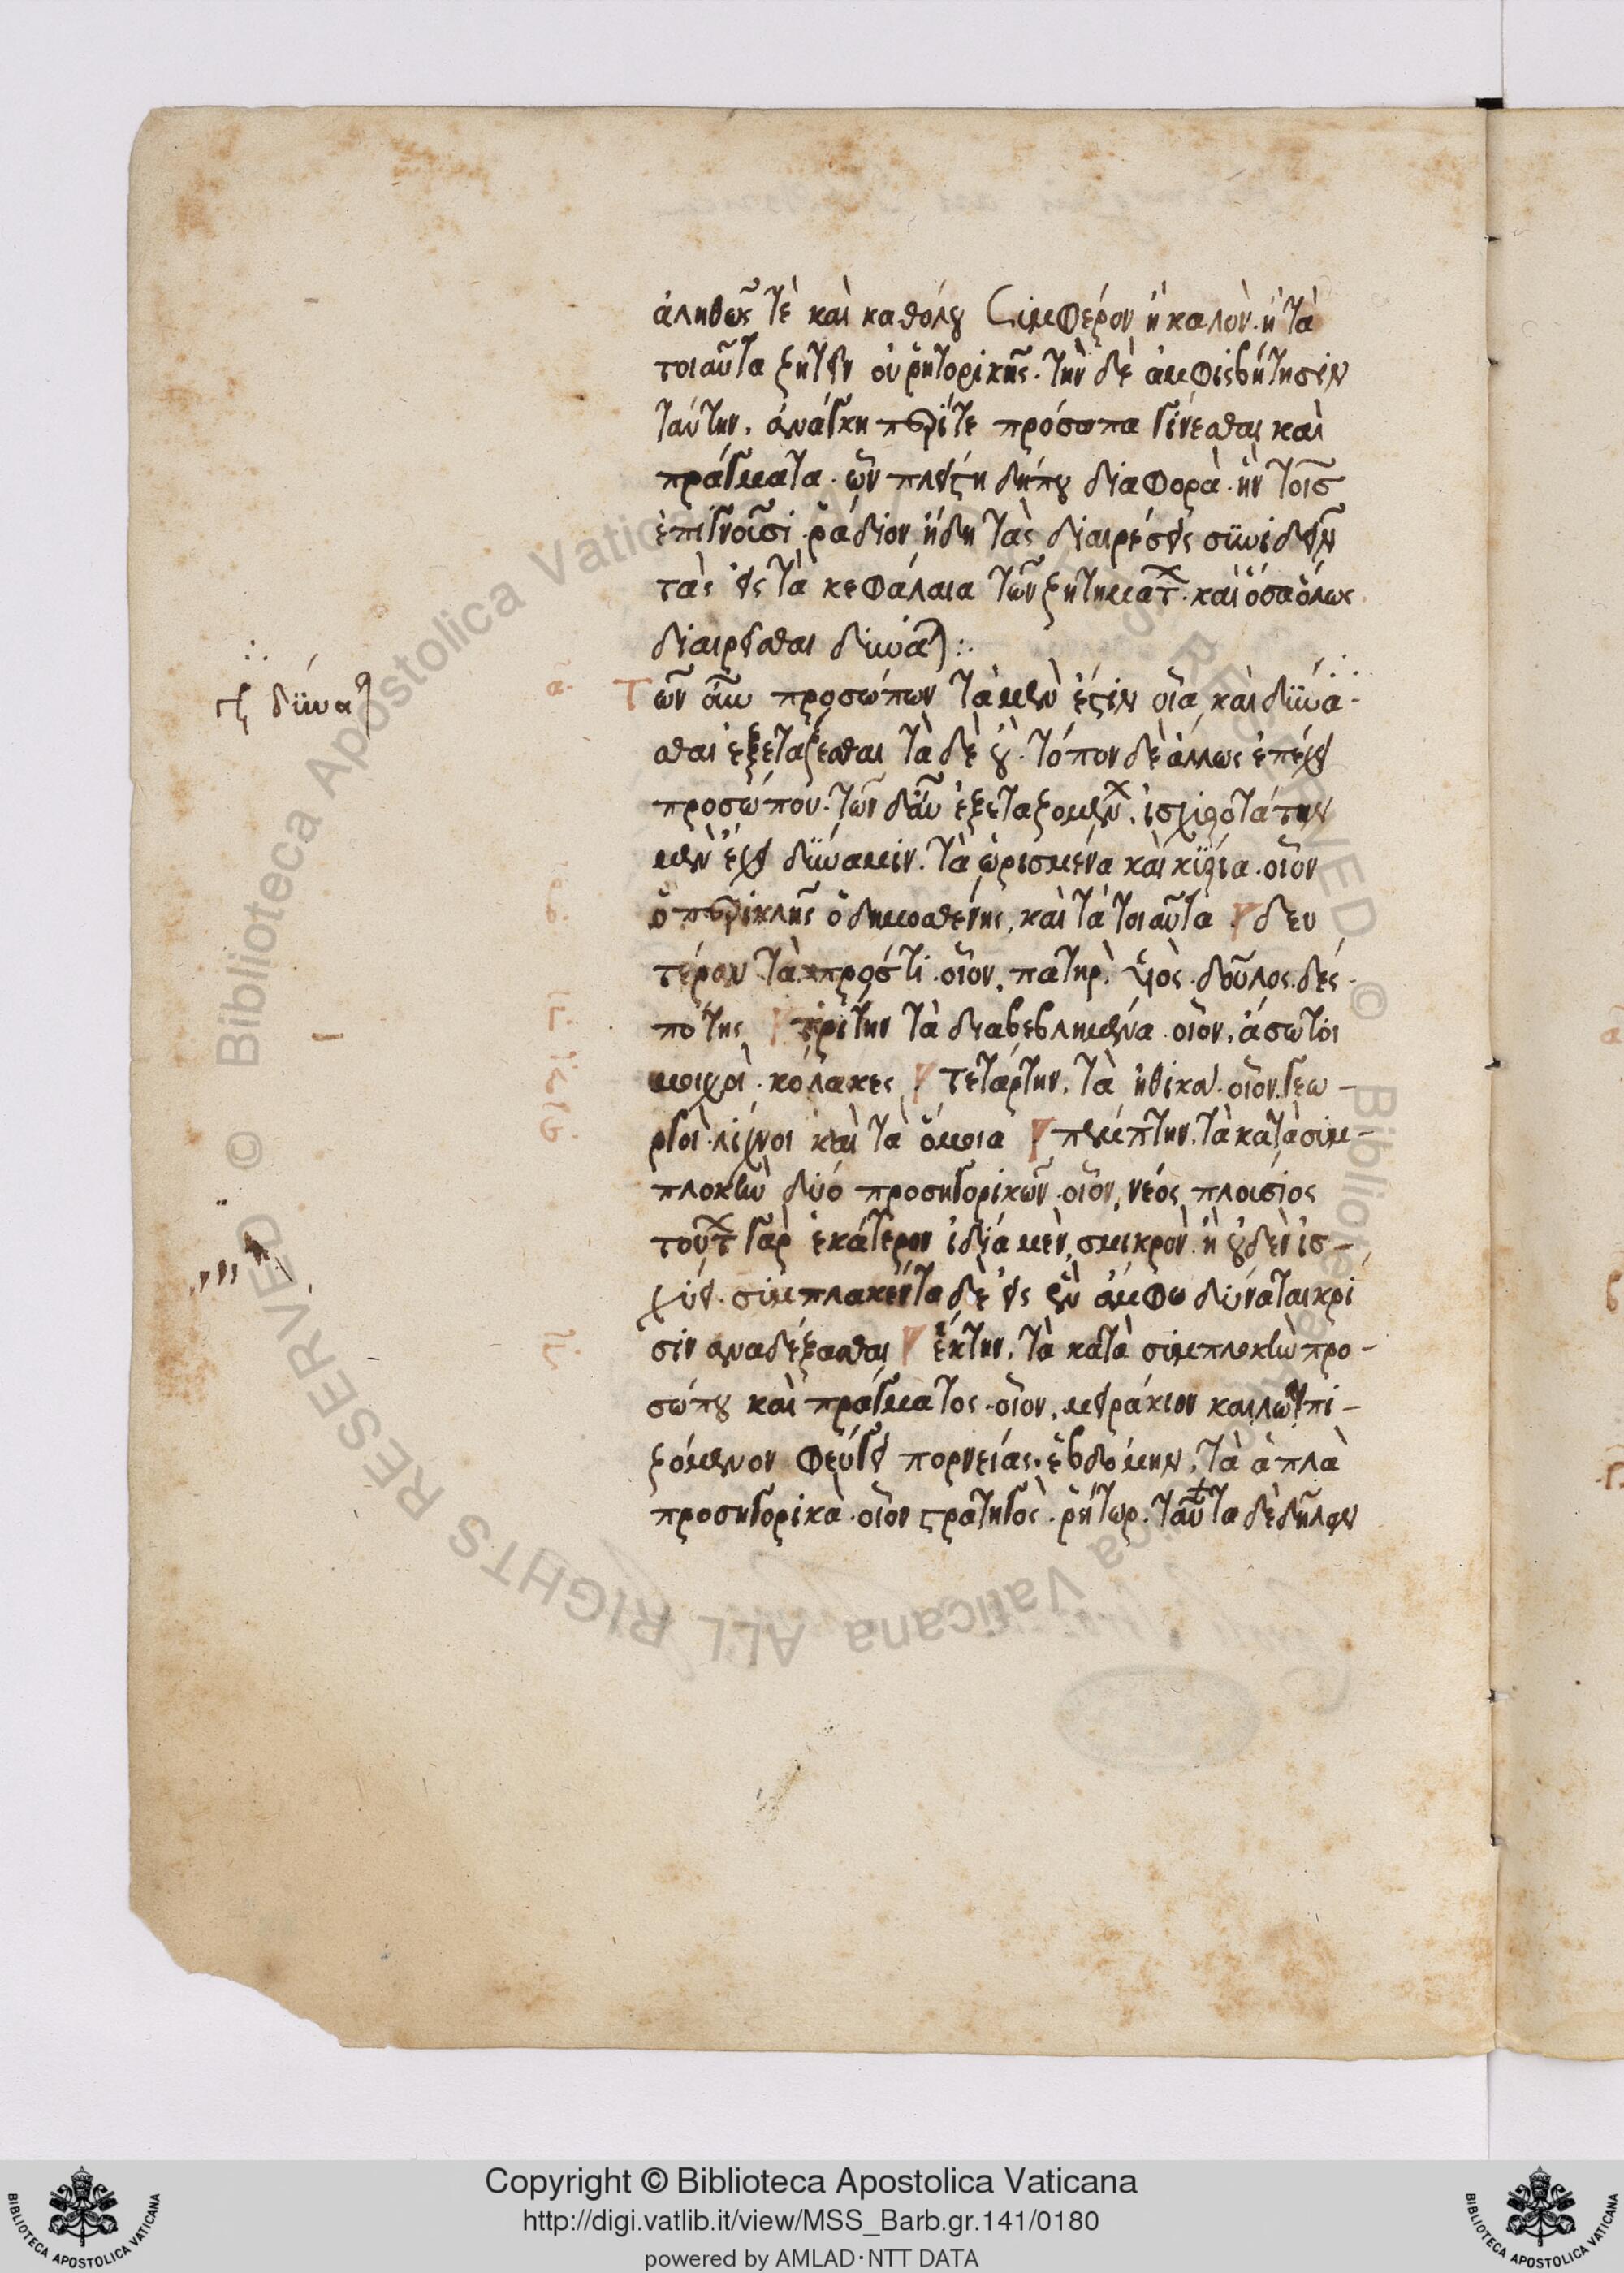 ἀληθῶς τὲ καὶ καθόλου συμφέρον ἢ καλὸν. ἢ τὰ
τοιαῦτα ζητεῖν οὐ ῥητορικῆς. τὴν δὲ ἀμφισβήτησιν
ταύτην, ἀνάγκη περί τε πρόσωπα γίνεσθαι καὶ
πράγματα. ὧν πλείστη δήπου διαφορὰ. ἣν τοῖσ
ἐπιγνοῦσι ῥάδιον ἤδη τὰς διαιρέσεις συνιδεῖν
τὰς εἰς τὰ κεφάλαια τῶν ζητημάτ. καὶ ὅσα ὅλως
διαιρεῖσθαι δύναται:.
α. Των οὖν προσώπων τὰ μὲν ἐστὶν οἷα καὶ δύνα-
τ δύναται
σθαι ἐξετάζεσθαι τὰ δὲ οὔ. τόπον δὲ ἄλλως ἐπέχει
προσώπου. τῶν δ' οὖν ἐξεταζομέν. ἰσχυροτάτην
μὲν ἔχει δύναμιν. τὰ ὡρισμένα καὶ κύρια. οἷον
β. ὁ περικλῆς ὁ δημοσθένης, καὶ τὰ τοιαῦτα δευ
τέραν τὰ πρός τι. οἷον. πατὴρ. υἱὸς. δοῦλος. δεσ-
Γ. πότης τρίτην τὰ διαβεβλημένα. οἷον. ἄσωτοι
δ. μοιχοὶ. κόλακες τετάρτην. τὰ ἠθικὰ. οἷον. γεω-
ργοὶ. λίχνοι καὶ τὰ ὅμοια πέμπτην. τὰ κατὰ συμ-
πλοκὴν δύο προσηγορικῶν. οἷον, νέος πλούσιος
τούτ γὰρ ἑκάτερον ἰδίᾳ μὲν σμικρὸν. ἢ οὐδὲν ἰσ-
χύει. συμπλακέντα δὲ εἰς ἓν ἄμφω δύναται κρί
σιν ἀναδέξασθαι ἕκτην. τὰ κατὰ συμπλοκὴν προ-
σώπου καὶ πράγματος. οἷον. μειράκιον καλλωπι-
ζόμενον φεύγει πορνείας. ἑβδόμην. τὰ ἁπλᾶ
προσηγορικὰ. οἷον στρατηγὸς. ῥήτωρ. ταῦτα δὲ δῆλον
Copyright © Biblioteca Apostolica Vaticana
http://digi.vatlib.it/view/MSS_Barb.gr.141/0180
powered by AMLAD·NTT DATA
BIBLIOTECA APOSTOLICA VATICANA
BIBLIOTECA APOSTOLICA VATICANA
© Biblioteca Apostolica Vaticana ALL RIGHTS RESERVED